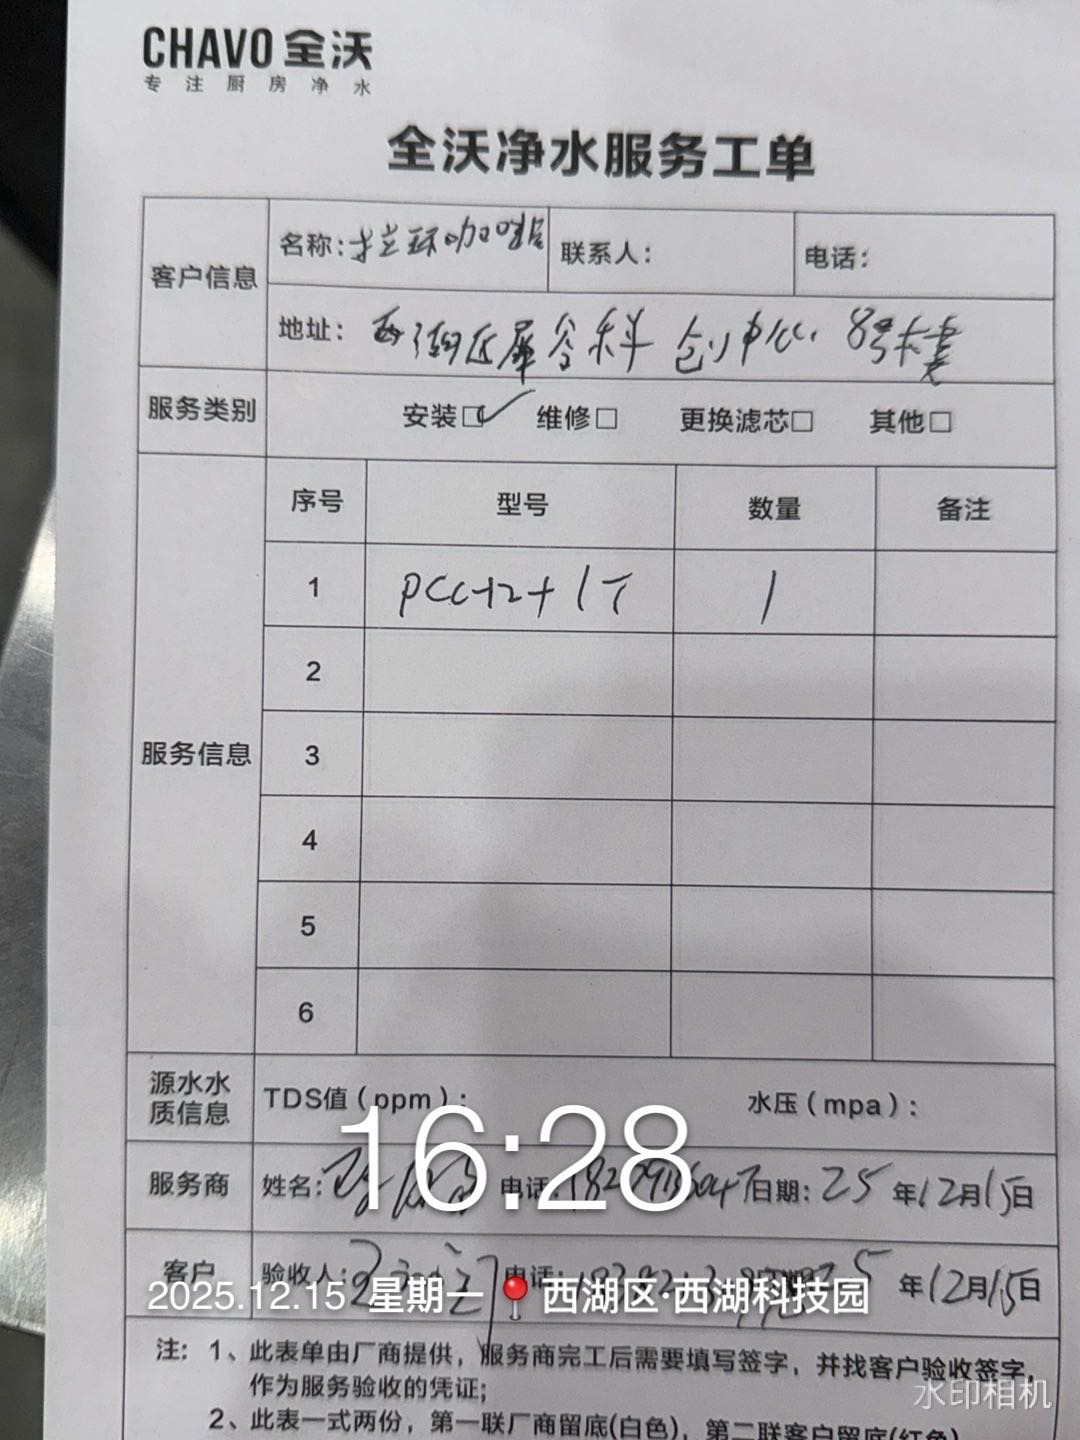 CHAVO 全沃
专注厨房净水
全沃净水服务工单
客户信息 名称: 咖啡店 联系人: 电话:
地址: 西湖区 科创中心 8号楼
服务类别 安装☑ 维修□ 更换滤芯□ 其他□
序号 型号 数量 备注
1 1
2
服务信息 3
4
5
6
源水水质信息 TDS值(ppm): 水压(mpa):
16:28
服务商 姓名: 电话: 日期: 25年12月15日
客户 验收人: 电话: 25年12月15日
2025.12.15 星期一 西湖区·西湖科技园
注: 1、此表单由厂商提供,服务商完工后需要填写签字,并找客户验收签字,
作为服务验收的凭证;
水印相机
2、此表一式两份,第一联厂商留底(白色),第二联客户留底(红色)